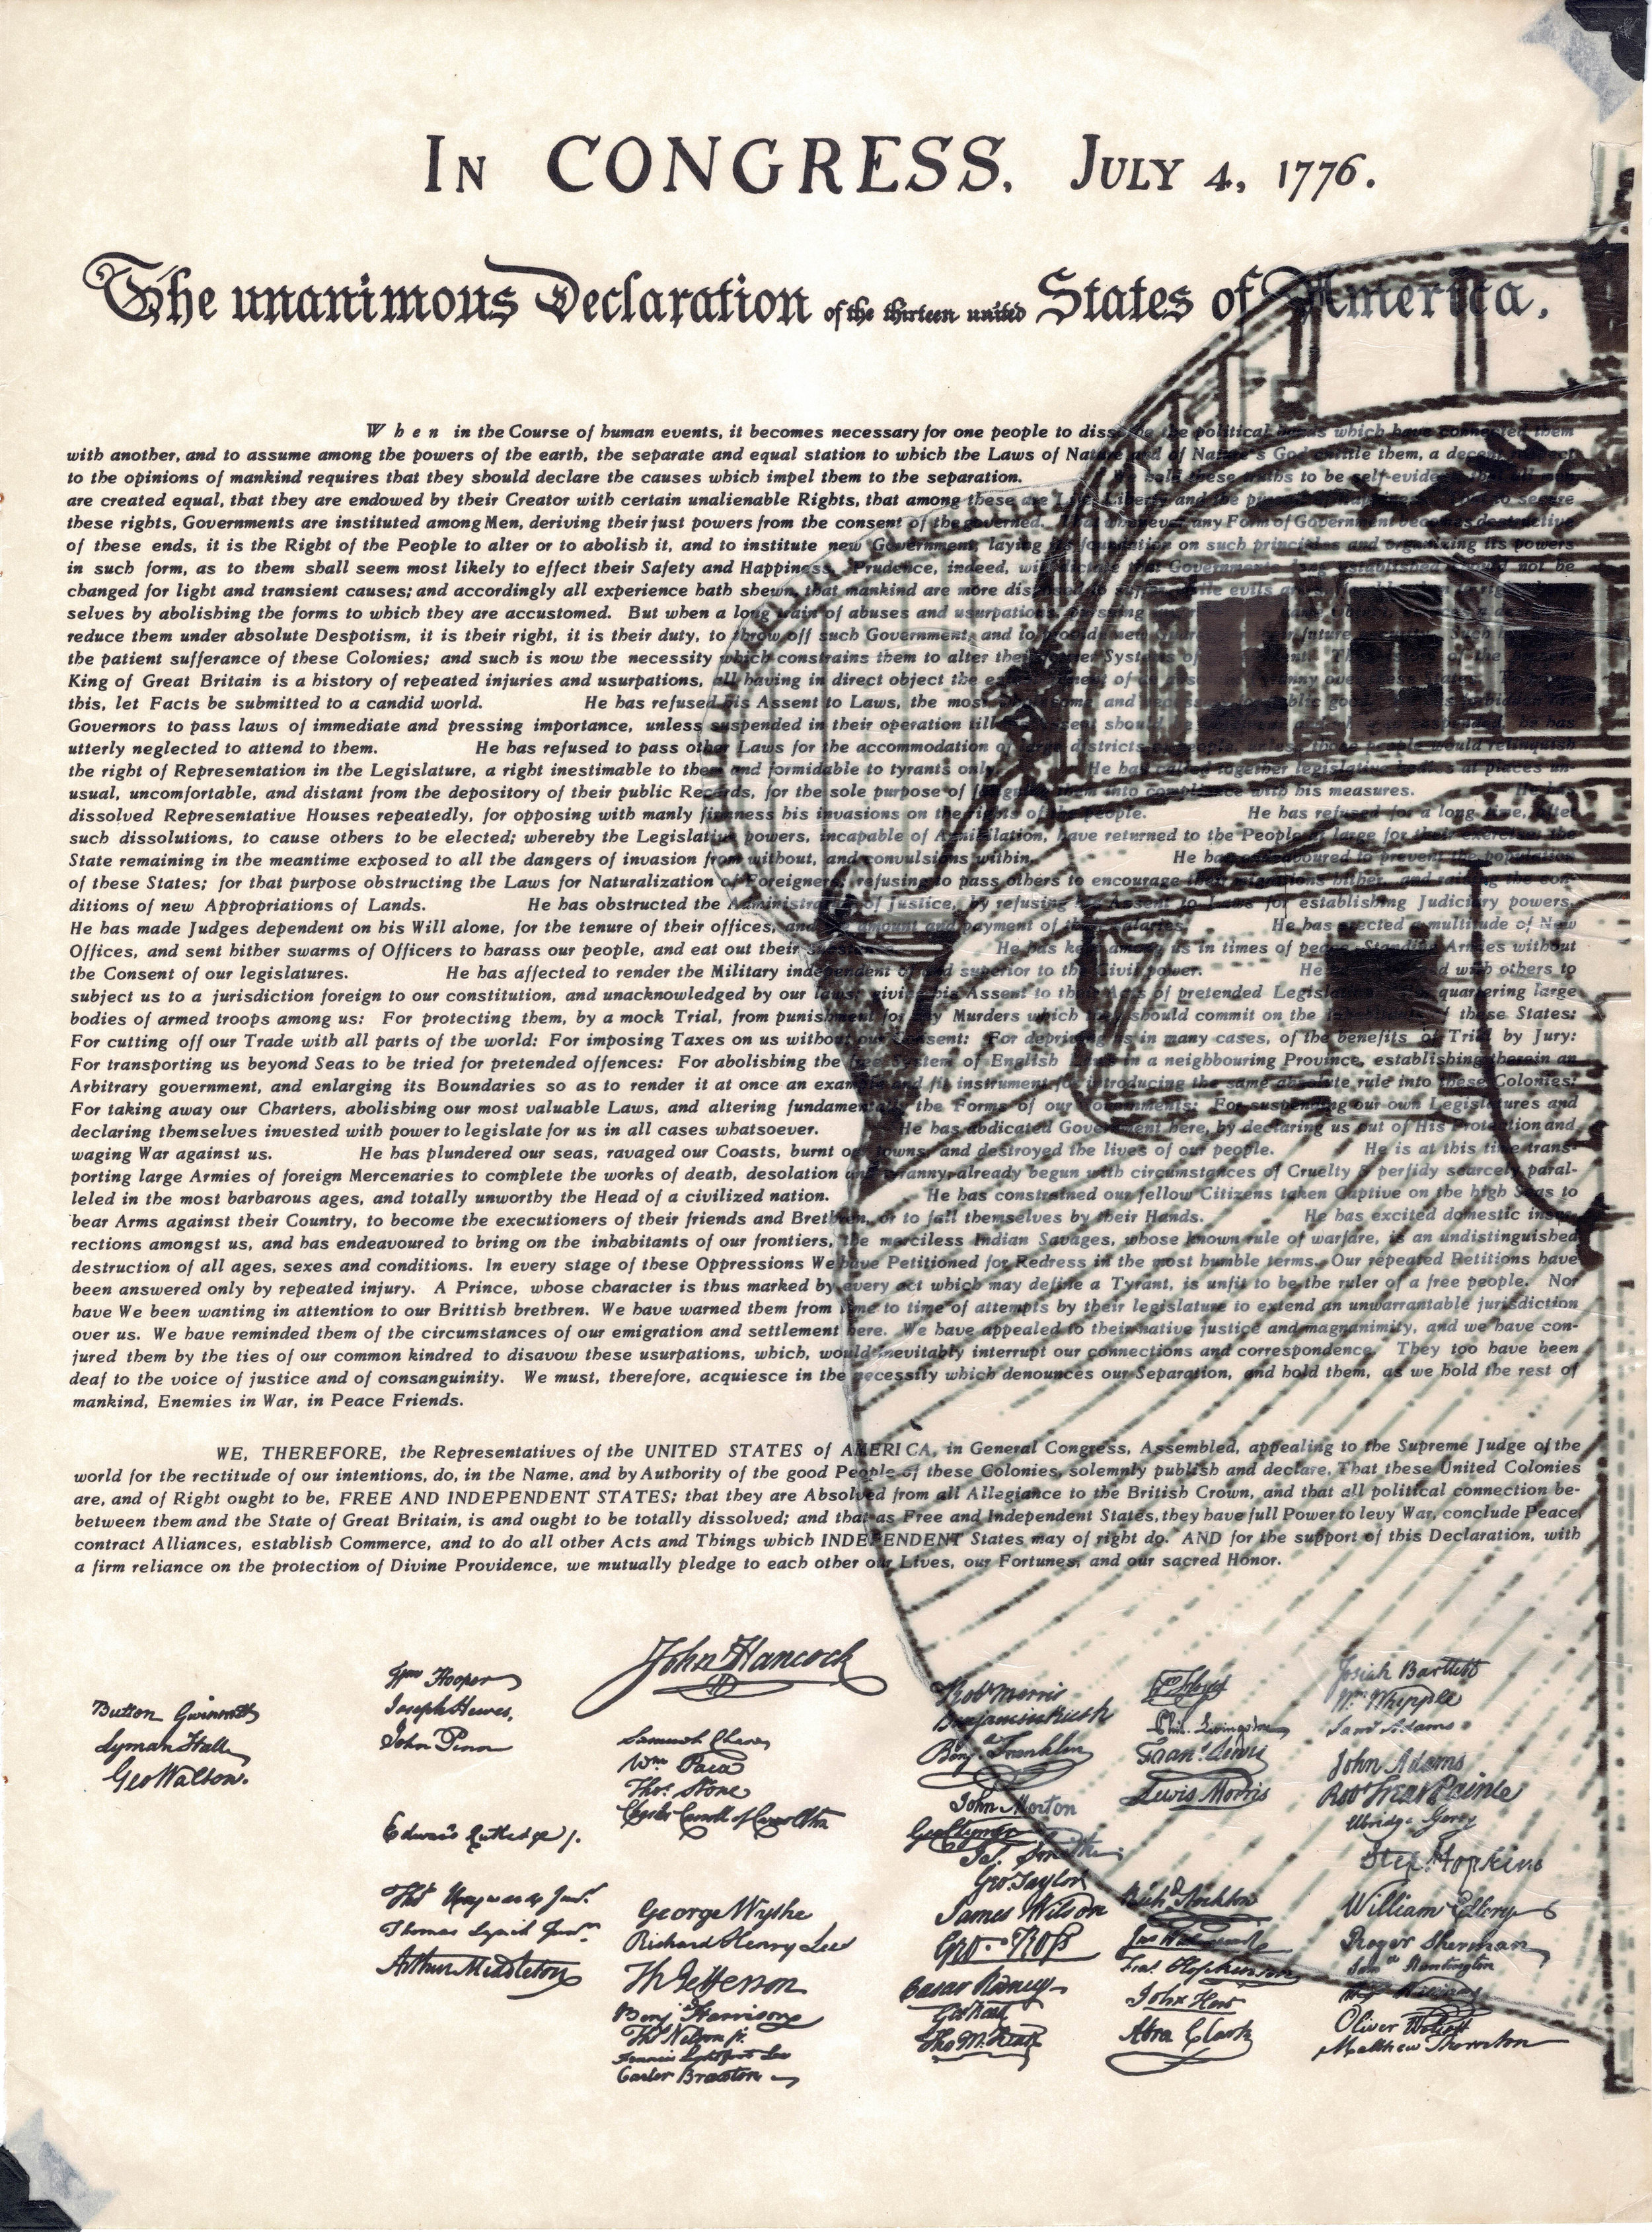 IN CONGRESS, JULY 4, 1776.
The unanimous Declaration of the thirteen united States of America.
When in the Course of human events, it becomes necessary for one people to dissolve the political bonds which have connected them
with another, and to assume among the powers of the earth, the separate and equal station to which the Laws of Nature and of Nature's God entitle them, a decent respect
to the opinions of mankind requires that they should declare the causes which impel them to the separation. We hold these truths to be self-evident, that all men
are created equal, that they are endowed by their Creator with certain unalienable Rights, that among these are Life, Liberty and the to secure
these rights, Governments are instituted among Men, deriving their just powers from the consent of the governed. That whenever any Form of Government becomes destructive
of these ends, it is the Right of the People to alter or to abolish it, and to institute new Government, laying its foundation on such principles and organizing its powers
in such form, as to them shall seem most likely to effect their Safety and Happiness. Prudence, indeed, will dictate that Governments long established should not be
changed for light and transient causes; and accordingly all experience hath shewn, that mankind are more disposed to suffer, while evils are
selves by abolishing the forms to which they are accustomed. But when a long train of abuses and usurpations, pursuing
reduce them under absolute Despotism, it is their right, it is their duty, to throw off such Government, and to provide new future Such
the patient sufferance of these Colonies; and such is now the necessity which constrains them to alter their former Systems of the
King of Great Britain is a history of repeated injuries and usurpations, all having in direct object the of an over these States.
this, let Facts be submitted to a candid world. He has refused his Assent to Laws, the most and
Governors to pass laws of immediate and pressing importance, unless suspended in their operation till should he has
utterly neglected to attend to them. He has refused to pass other Laws for the accommodation of large districts of people, unless those people would relinquish
the right of Representation in the Legislature, a right inestimable to them and formidable to tyrants only. He has called together legislative bodies at places un-
usual, uncomfortable, and distant from the depository of their public Records, for the sole purpose of fatiguing them into compliance with his measures. He has
dissolved Representative Houses repeatedly, for opposing with manly firmness his invasions on the rights of the people. He has refused for a long time, after
such dissolutions, to cause others to be elected; whereby the Legislative powers, incapable of Annihilation, have returned to the People at large for their exercise; the
State remaining in the meantime exposed to all the dangers of invasion from without, and convulsions within. He has endeavoured to prevent the population
of these States; for that purpose obstructing the Laws for Naturalization of Foreigners; refusing to pass others to encourage their migrations hither, and raising the con-
ditions of new Appropriations of Lands. He has obstructed the Administration of Justice, by refusing his Assent to Laws for establishing Judiciary powers.
He has made Judges dependent on his Will alone, for the tenure of their offices, and the amount and payment of their salaries. He has erected a multitude of New
Offices, and sent hither swarms of Officers to harass our people, and eat out their He has kept among us in times of peace, Standing Armies without
the Consent of our legislatures. He has affected to render the Military independent of and superior to the Civil power. He with others to
subject us to a jurisdiction foreign to our constitution, and unacknowledged by our laws; giving his Assent to their Acts of pretended Legislation: quartering large
bodies of armed troops among us: For protecting them, by a mock Trial, from punishment for any Murders which they should commit on the Inhabitants of these States:
For cutting off our Trade with all parts of the world: For imposing Taxes on us without our Consent: For depriving us in many cases, of the benefits of Trial by Jury:
For transporting us beyond Seas to be tried for pretended offences: For abolishing the free System of English Laws in a neighbouring Province, establishing therein an
Arbitrary government, and enlarging its Boundaries so as to render it at once an example and fit instrument for introducing the same absolute rule into these Colonies:
For taking away our Charters, abolishing our most valuable Laws, and altering fundamentally the Forms of our Governments: For suspending our own Legislatures and
declaring themselves invested with power to legislate for us in all cases whatsoever. He has abdicated Government here, by declaring us out of His Protection and
waging War against us. He has plundered our seas, ravaged our Coasts, burnt our towns, and destroyed the lives of our people. He is at this time trans-
porting large Armies of foreign Mercenaries to complete the works of death, desolation and tyranny, already begun with circumstances of Cruelty & perfidy scarcely paral-
leled in the most barbarous ages, and totally unworthy the Head of a civilized nation. He has constrained our fellow Citizens taken Captive on the high Seas to
bear Arms against their Country, to become the executioners of their friends and Brethren, or to fall themselves by their Hands. He has excited domestic insur-
rections amongst us, and has endeavoured to bring on the inhabitants of our frontiers, the merciless Indian Savages, whose known rule of warfare, is an undistinguished
destruction of all ages, sexes and conditions. In every stage of these Oppressions We have Petitioned for Redress in the most humble terms. Our repeated Petitions have
been answered only by repeated injury. A Prince, whose character is thus marked by every act which may define a Tyrant, is unfit to be the ruler of a free people. Nor
have We been wanting in attention to our Brittish brethren. We have warned them from time to time of attempts by their legislature to extend an unwarrantable jurisdiction
over us. We have reminded them of the circumstances of our emigration and settlement here. We have appealed to their native justice and magnanimity, and we have con-
jured them by the ties of our common kindred to disavow these usurpations, which, would inevitably interrupt our connections and correspondence. They too have been
deaf to the voice of justice and of consanguinity. We must, therefore, acquiesce in the necessity which denounces our Separation, and hold them, as we hold the rest of
mankind, Enemies in War, in Peace Friends.
WE, THEREFORE, the Representatives of the UNITED STATES of AMERICA, in General Congress, Assembled, appealing to the Supreme Judge of the
world for the rectitude of our intentions, do, in the Name, and by Authority of the good People of these Colonies, solemnly publish and declare, That these United Colonies
are, and of Right ought to be, FREE AND INDEPENDENT STATES; that they are Absolved from all Allegiance to the British Crown, and that all political connection be-
between them and the State of Great Britain, is and ought to be totally dissolved; and that as Free and Independent States, they have full Power to levy War, conclude Peace,
contract Alliances, establish Commerce, and to do all other Acts and Things which INDEPENDENT States may of right do. AND for the support of this Declaration, with
a firm reliance on the protection of Divine Providence, we mutually pledge to each other our Lives, our Fortunes, and our sacred Honor.
Button Gwinnett
Lyman Hall
Geo Walton.
Wm Hooper
Joseph Hewes,
John Penn
Edward Rutledge /.
Thos Heyward Junr.
Thomas Lynch Junr.
Arthur Middleton
John Hancock
Samuel Chase
Wm. Paca
Thos. Stone
Charles Carroll of Carrollton
George Wythe
Richard Henry Lee
Th Jefferson
Benj Harrison
Thos Nelson jr.
Francis Lightfoot Lee
Carter Braxton
Robt Morris
Benjamin Rush
Benj. Franklin
John Morton
Geo Clymer
Jas. Smith
Geo. Taylor
James Wilson
Geo. Ross
Caesar Rodney
Geo Read
Tho M:Kean
Phil. Livingston
Frans. Lewis
Lewis Morris
Richd. Stockton
Jno Witherspoon
Fras. Hopkinson
John Hart
Abra Clark
Josiah Bartlett
Wm. Whipple
Saml Adams
John Adams
Robt Treat Paine
Elbridge Gerry
Step. Hopkins
William Ellery
Roger Sherman
Saml Huntington
Wm. Williams
Oliver Wolcott
Matthew Thornton